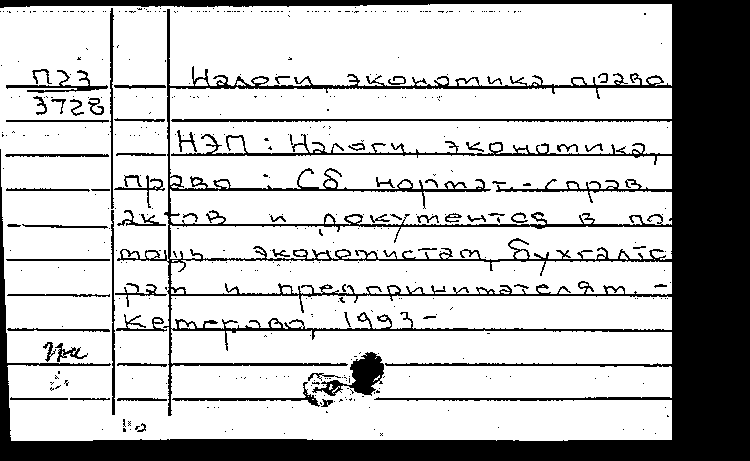 П23
3728
Налоги, экономика, право
НЭП : Налоги, экономика,
право : Сб. нормат.-справ.
актов и документов в по-
мощь экономистам, бухгалте
рам и предпринимателям. -
Кемерово, 1993-